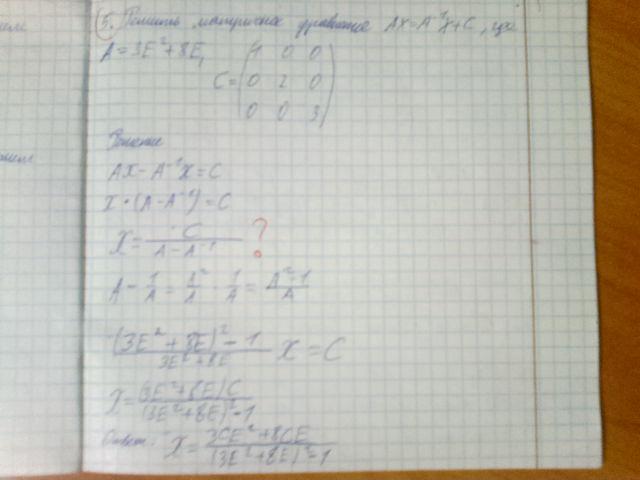 5. Решить матричное уравнение AX=A⁻¹X+C, где
A=3E²+8E,
C= (1 0 0
0 2 0
0 0 3)
Решение
AX-A⁻¹X=C
X*(A-A⁻¹)=C
X= C / (A-A⁻¹) ?
A- 1/A = A²/A - 1/A = (A²-1)/A
((3E²+8E)²-1) / (3E²+8E) X=C
X= (3E²+8E)C / ((3E²+8E)²-1)
Ответ: X= (3CE²+8CE) / ((3E²+8E)²-1)